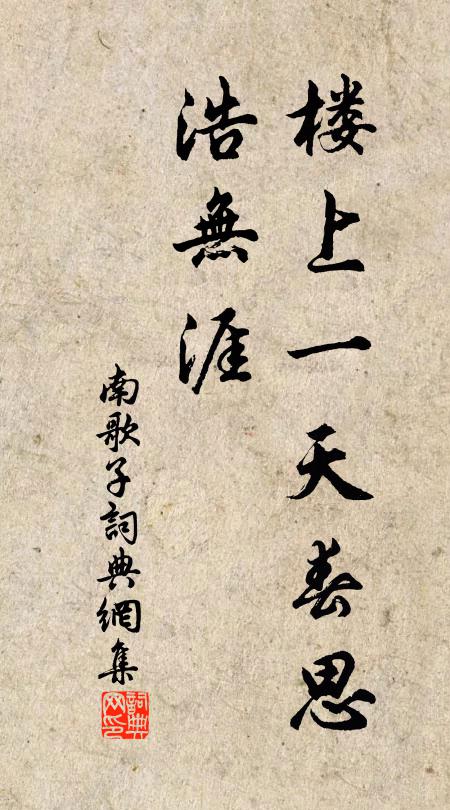 楼上一天春思
浩無涯
南歌子詞典網集
詞典网印